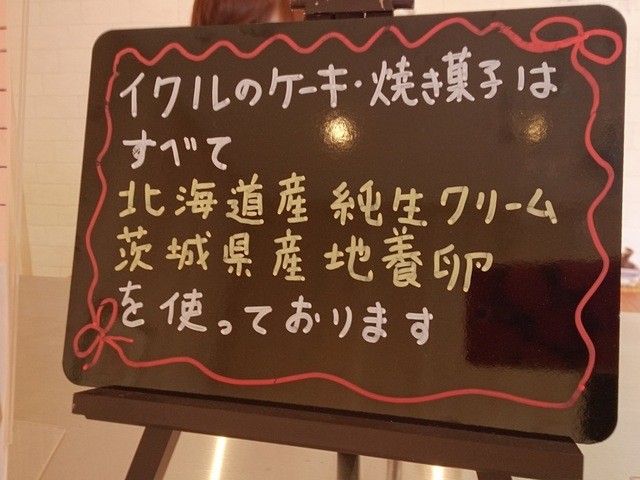 イクルのケーキ・焼き菓子は
すべて
北海道産 純生クリーム
茨城県産地養卵
を使っております